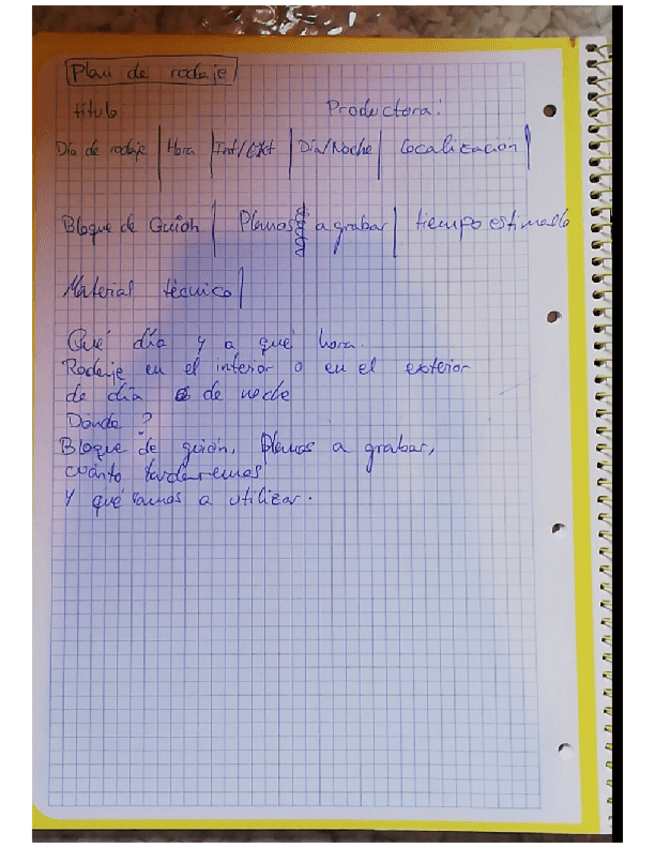 Plan de rodaje
título Productora:
Día de rodaje | Hora | Int/Ext | Día/Noche | Localización |
Bloque de Guión | Planos a grabar | tiempo estimado
Material técnico |
Qué día y a qué hora.
Rodaje en el interior o en el exterior
de día o de noche
Dónde ?
Bloque de guión, planos a grabar,
cuánto tardaremos
Y qué vamos a utilizar.